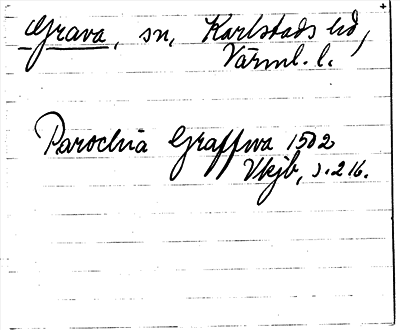 Grava, sn, Karlstads hd,
Värml. l.
Parochia Graffwa 1502
Vkjb, s. 216.